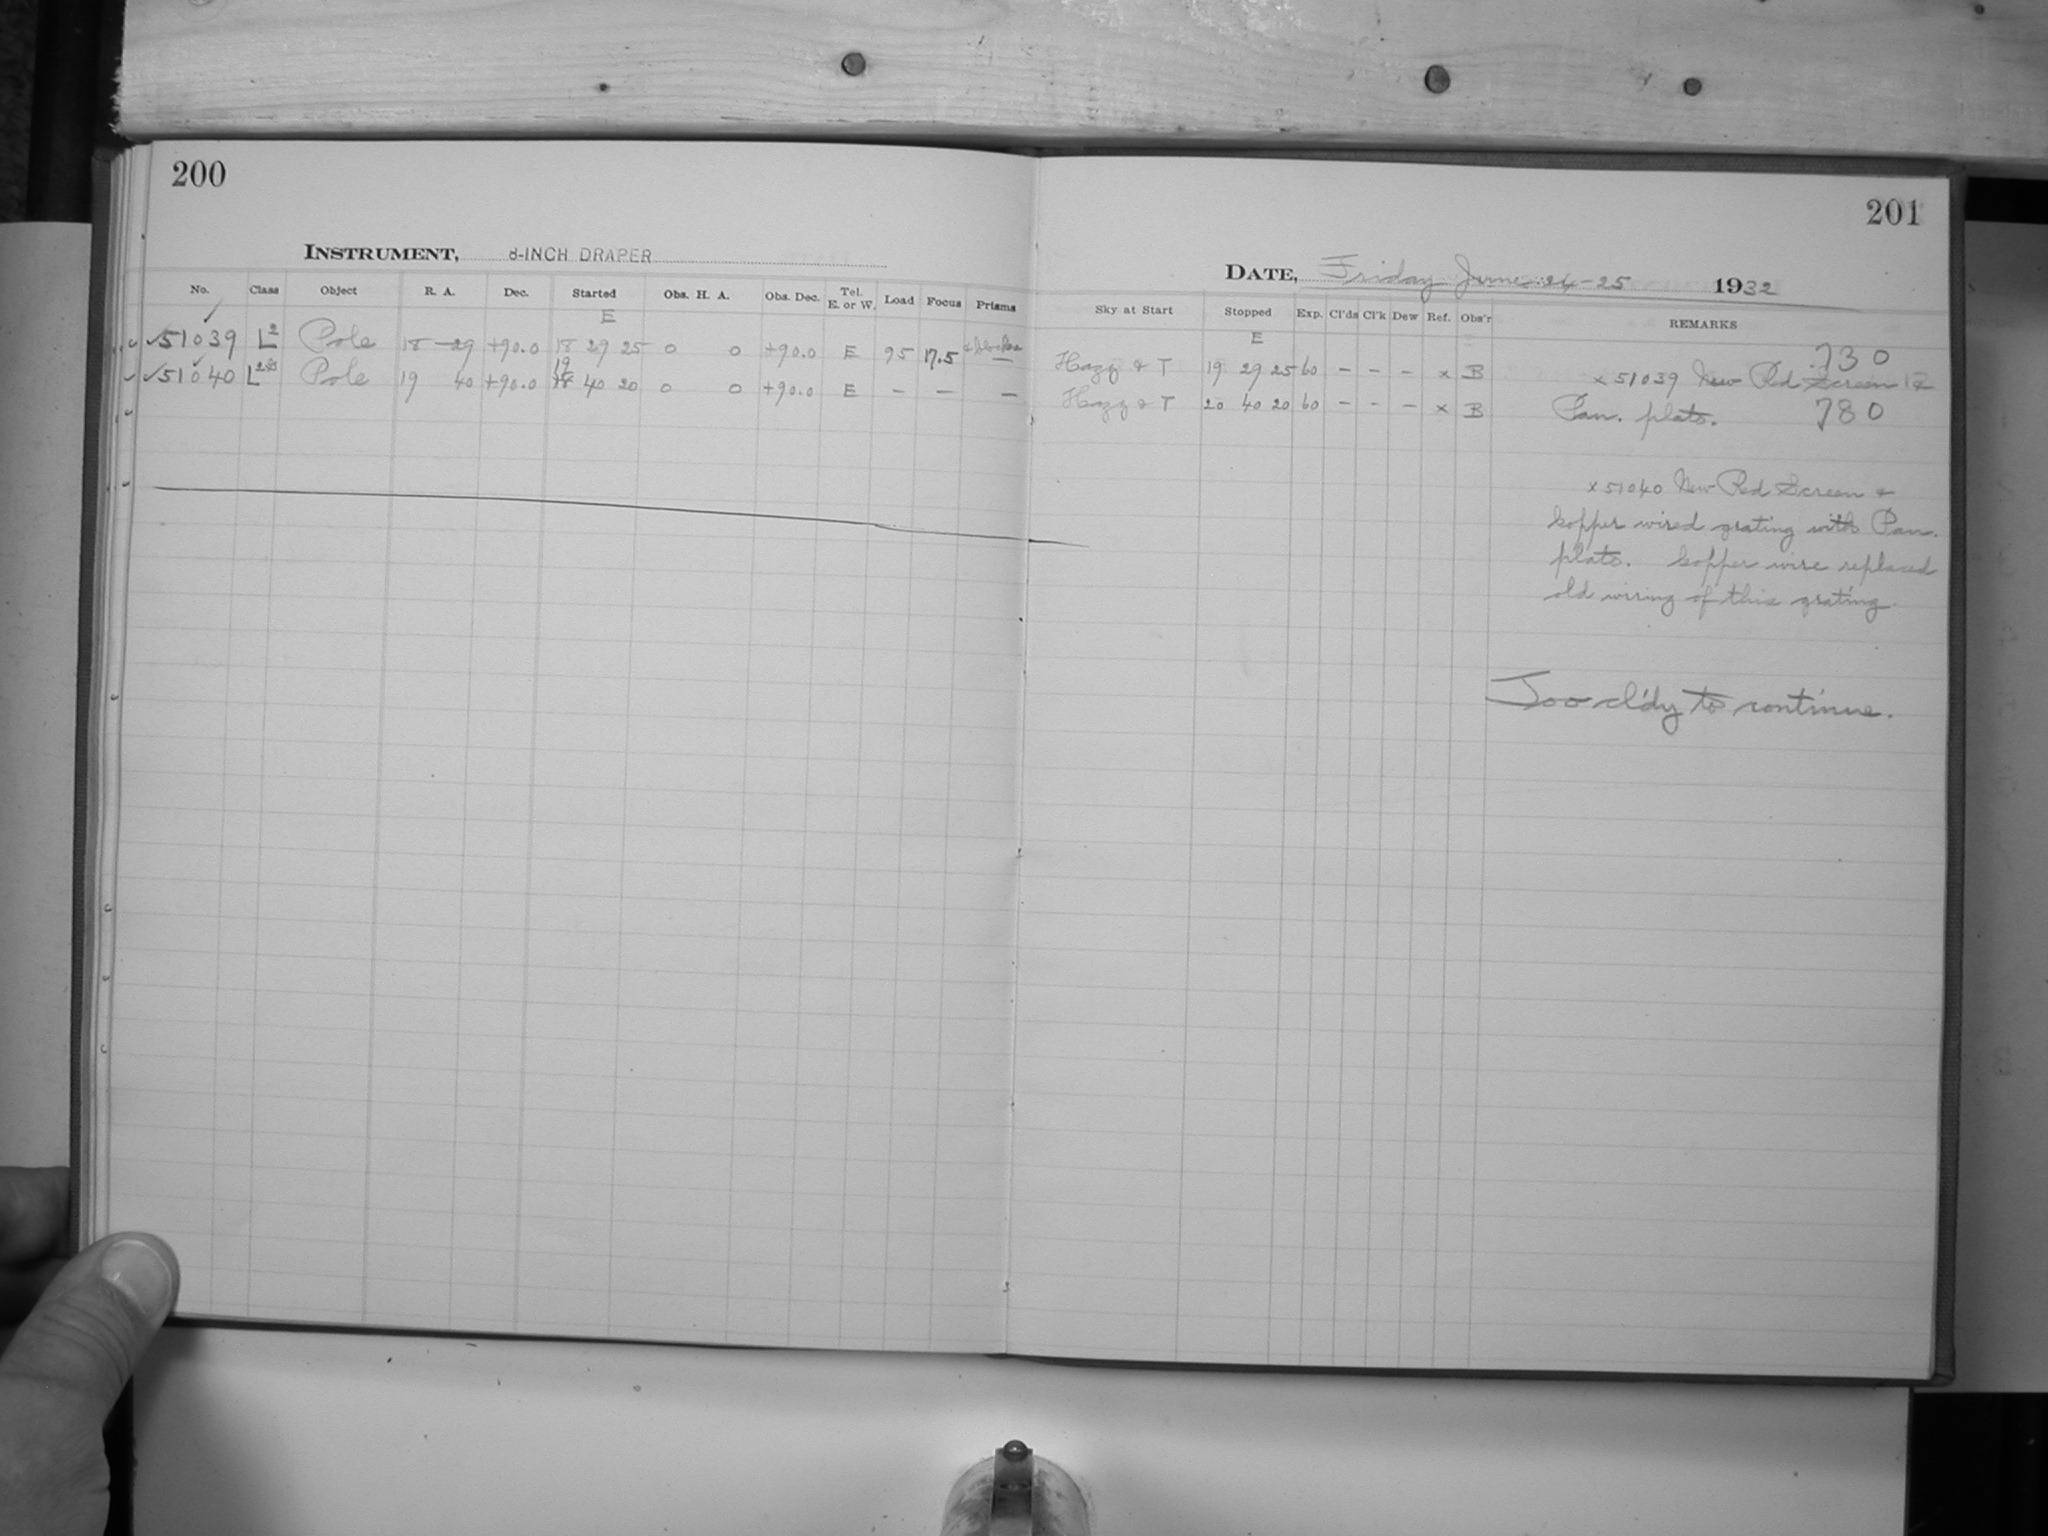 200
INSTRUMENT, 8-INCH DRAPER
No. Class Object R. A. Dec. Started Obs. H. A. Obs. Dec. Tel. E. or W. Load Focus Prisms
E
✓51039 L2 Pole 18 29 +90.0 18 29 25 0 0 +90.0 E 95 17.5 —
19
✓51040 L Pole 19 40 +90.0 18 40 20 0 0 +90.0 E — — —
201
DATE, Friday June 24-25 1932
Sky at Start Stopped Exp. Cl'ds Cl'k Dew Ref. Obs'r REMARKS
E
Hazy & T 19 29 25 60 - - - x B
Hazy & T 20 40 20 60 - - - x B
730
x 51039 New Red Screen &
Pan. plate. 780
x 51040 New Red Screen &
Copper wired grating with Pan.
plate. Copper wire replaced
old wiring of this grating.
Too cl'dy to continue.